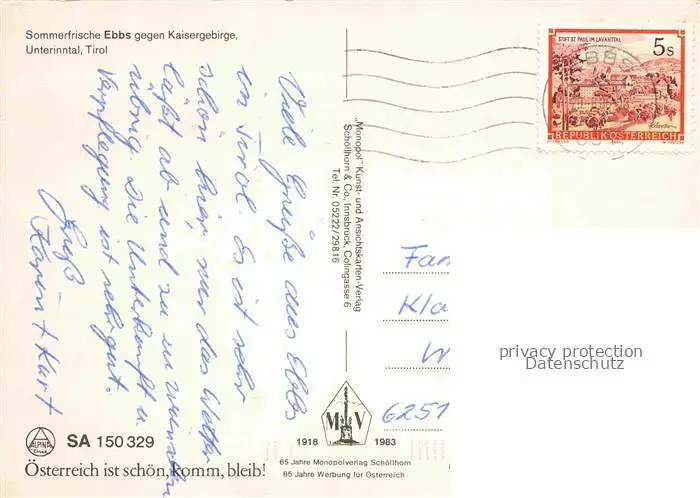 Sommerfrische Ebbs gegen Kaisergebirge,
Unterinntal, Tirol
Viele Grüße aus Ebbs
in Tirol. Es ist sehr
schön hier, nur das Wetter
läßt ab und zu zu wünschen
übrig. Die Unterkunft u.
Verpflegung ist sehr gut.
Gruß
Karin + Kurt
„Monopol" Kunst- und Ansichtskarten-Verlag
Schöllhorn & Co., Innsbruck, Colingasse 6
Tel. Nr. 05222/29816
STIFT ST. PAUL IM LAVANTTAL
5s
REPUBLIK ÖSTERREICH
Fam
Kla
W
6251
privacy protection
Datenschutz
M V
1918 1983
65 Jahre Monopolverlag Schöllhorn
65 Jahre Werbung für Österreich
ALPINA
Druck
SA 150 329
Österreich ist schön, komm, bleib!